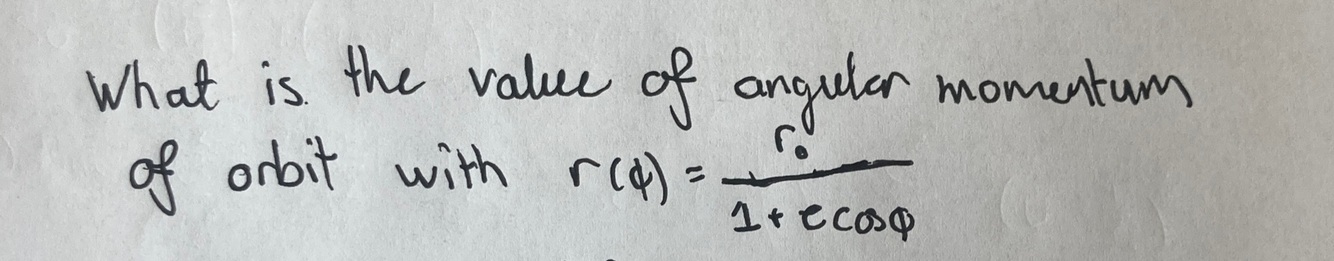 What is the value of angular momentum
of orbit with r(φ) = r₀ / (1 + e cosφ)